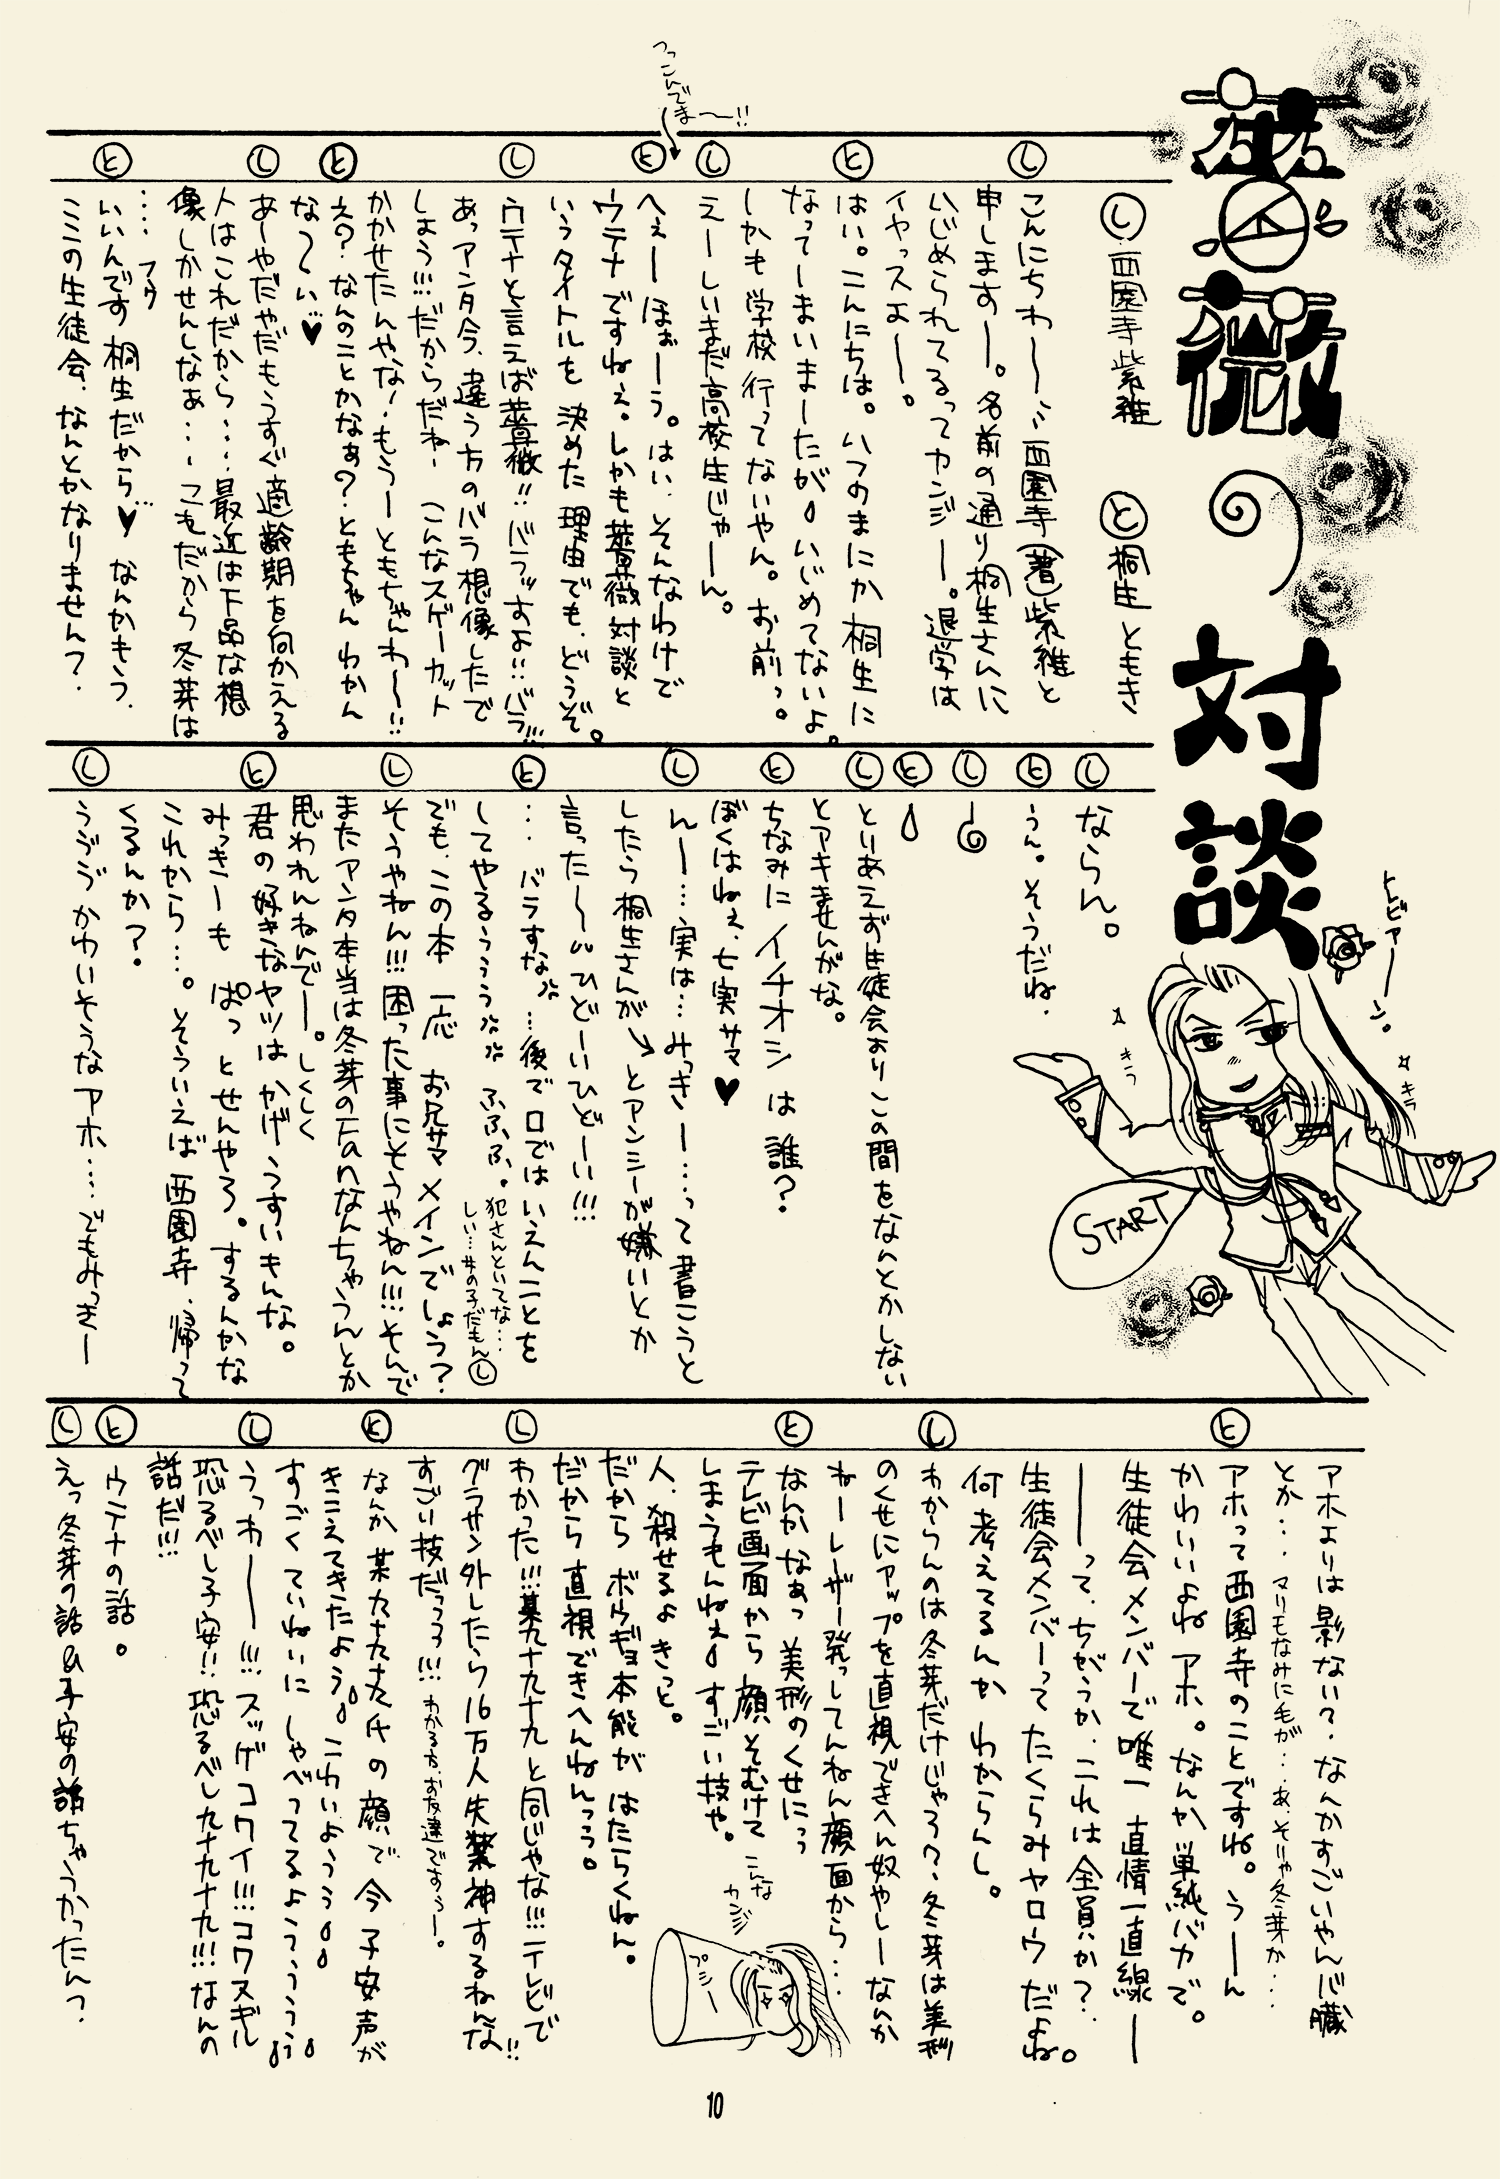 薔薇の対談
し 西園寺紫雅 と 桐生ともき
し
と
し
と
つっこんでま〜!!
し
と
し
と
こんにちわー〜ミミ西園寺(薔)紫雅と
申しますー。名前の通り桐生さんに
いじめられてるってカンジー。退学は
イヤっスよー。
はい。こんにちは。いつのまにか桐生に
なってーまいまーたが いじめてないよ。
しかも学校行ってないやん。お前っ。
えーしいまだ高校生じゃーん。
へぇー ほぉーう。はい、そんなわけで
ウテナですねぇ。しかも薔薇対談と
いうタイトルを決めた理由でも、どうぞ。
ウテナと言えば薔薇!!バラっすよ!!バラ!!!
あっアンタ今、違う方のバラ想像したで
しょう!!!だからだねー こんなスゲーカット
かかせたんやな!もうーともちゃんわ〜!!
え?なんのことかなぁ?ともちゃん わかん
な〜い…♥
あーやだやだもうすぐ適齢期を向かえる
人はこれだから……最近は下品な想
像しかせんしなぁ……こもだから冬芽は
…… フゥ
いいんです 桐生だから…♥ なんかもう、
ここの生徒会、なんとかなりません?
し
と
し
と
し
と
し
と
し
と
し
ならん。
うん。そうだね、
とりあえず生徒会よりこの間をなんとかしない
とアキませんがな。
ちなみにイチオシは誰?
ぼくはねぇ、七実サマ♥
んー…実は…みっきー……って書こうと
したら桐生さんが↘とアンシーが嫌いとか
言った〜〃ひどーいひどーい!!!
… バラすな。…後で口ではいえんことを
してやるぅぅぅ ふふふ。
犯さんといてな…
しい…女の子だもん し
でも、この本 一応 お兄サマ メインでしょう?
そうやねん!!!困った事にそうやねん!!!そんで
またアンタ本当は冬芽のFanなんちゃうんとか
思われんねんでー。しくしく
君の好きなヤツはかげ うすいもんな。
みっきーも ぱっとせんやろ。するんかな
これから…。そういえば西園寺、帰って
くるんか?
うづづ かわいそうなアホ……でもみっきー
トビァーン。
キラ
キラ
START
と
し
と
し
と
し
と
し
アホよりは影ない?なんかすごいやん心臓
とか… マリもなみに毛が…あ、そりゃ冬芽か…
アホって西園寺のことですね。うーん
かわいいよね アホ。なんか単純バカで。
生徒会メンバーで唯一 直情一直線ー
ーって、ちがうか、これは全員か?
生徒会メンバーってたくらみヤロウだよね。
何考えてるんか わからんし。
わからんのは冬芽だけじゃろ?冬芽は美形
のくせにアップを直視できへん奴やしーなんか
ねーレーザー発ってんねん顔面から…
なんかなぁっ 美形のくせにっぅ
テレビ画面から顔そむけて
しまうもんねぇ すごい技や。
人、殺せるよきっと。
こんな
カンジ
プシー
だから ボウギョ本能が はたらくねん。
だから直視できへんねんっぅ。
わかった!!!某九十九十九と同じゃな!!!テレビで
グラサン外したら16万人失禁神するねんな!!
すごい技だっぅぅ!!!
わかる方、お友達ですぅー。
なんか某九十九十九氏の顔で 今 子安声が
きこえてきたよう。こわいようぅ
すごくていねいに しゃべってるようぅぅぅ
うっわーー!!! スッゲコワイ!!!コワスギル
恐るべし子安!!恐るべし九十九十九!!!なんの
話だ!!!
ウテナの話。
えっ冬芽の話&子安の話ちゃうかったんっ?
10